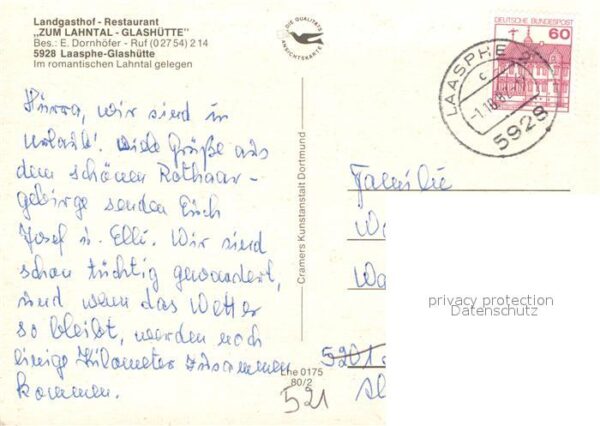 Landgasthof - Restaurant
„ZUM LAHNTAL - GLASHÜTTE"
Bes.: E. Dornhöfer - Ruf (0 27 54) 2 14
5928 Laasphe-Glashütte
Im romantischen Lahntal gelegen
DIE QUALITÄTS
ANSICHTSKARTE
DEUTSCHE BUNDESPOST
60
LAASPHE 2
c
5928
Hurra, wir sind in
Urlaub! Viele Grüße aus
dem schönen Rothaar-
gebirge senden Euch
Josef u. Elli. Wir sind
schon tüchtig gewandert,
und wenn das Wetter
so bleibt, werden noch
einige Kilometer zusammen
kommen.
Cramers Kunstanstalt Dortmund
Lhe 0175
80/2
521
Familie
5201
privacy protection
Datenschutz